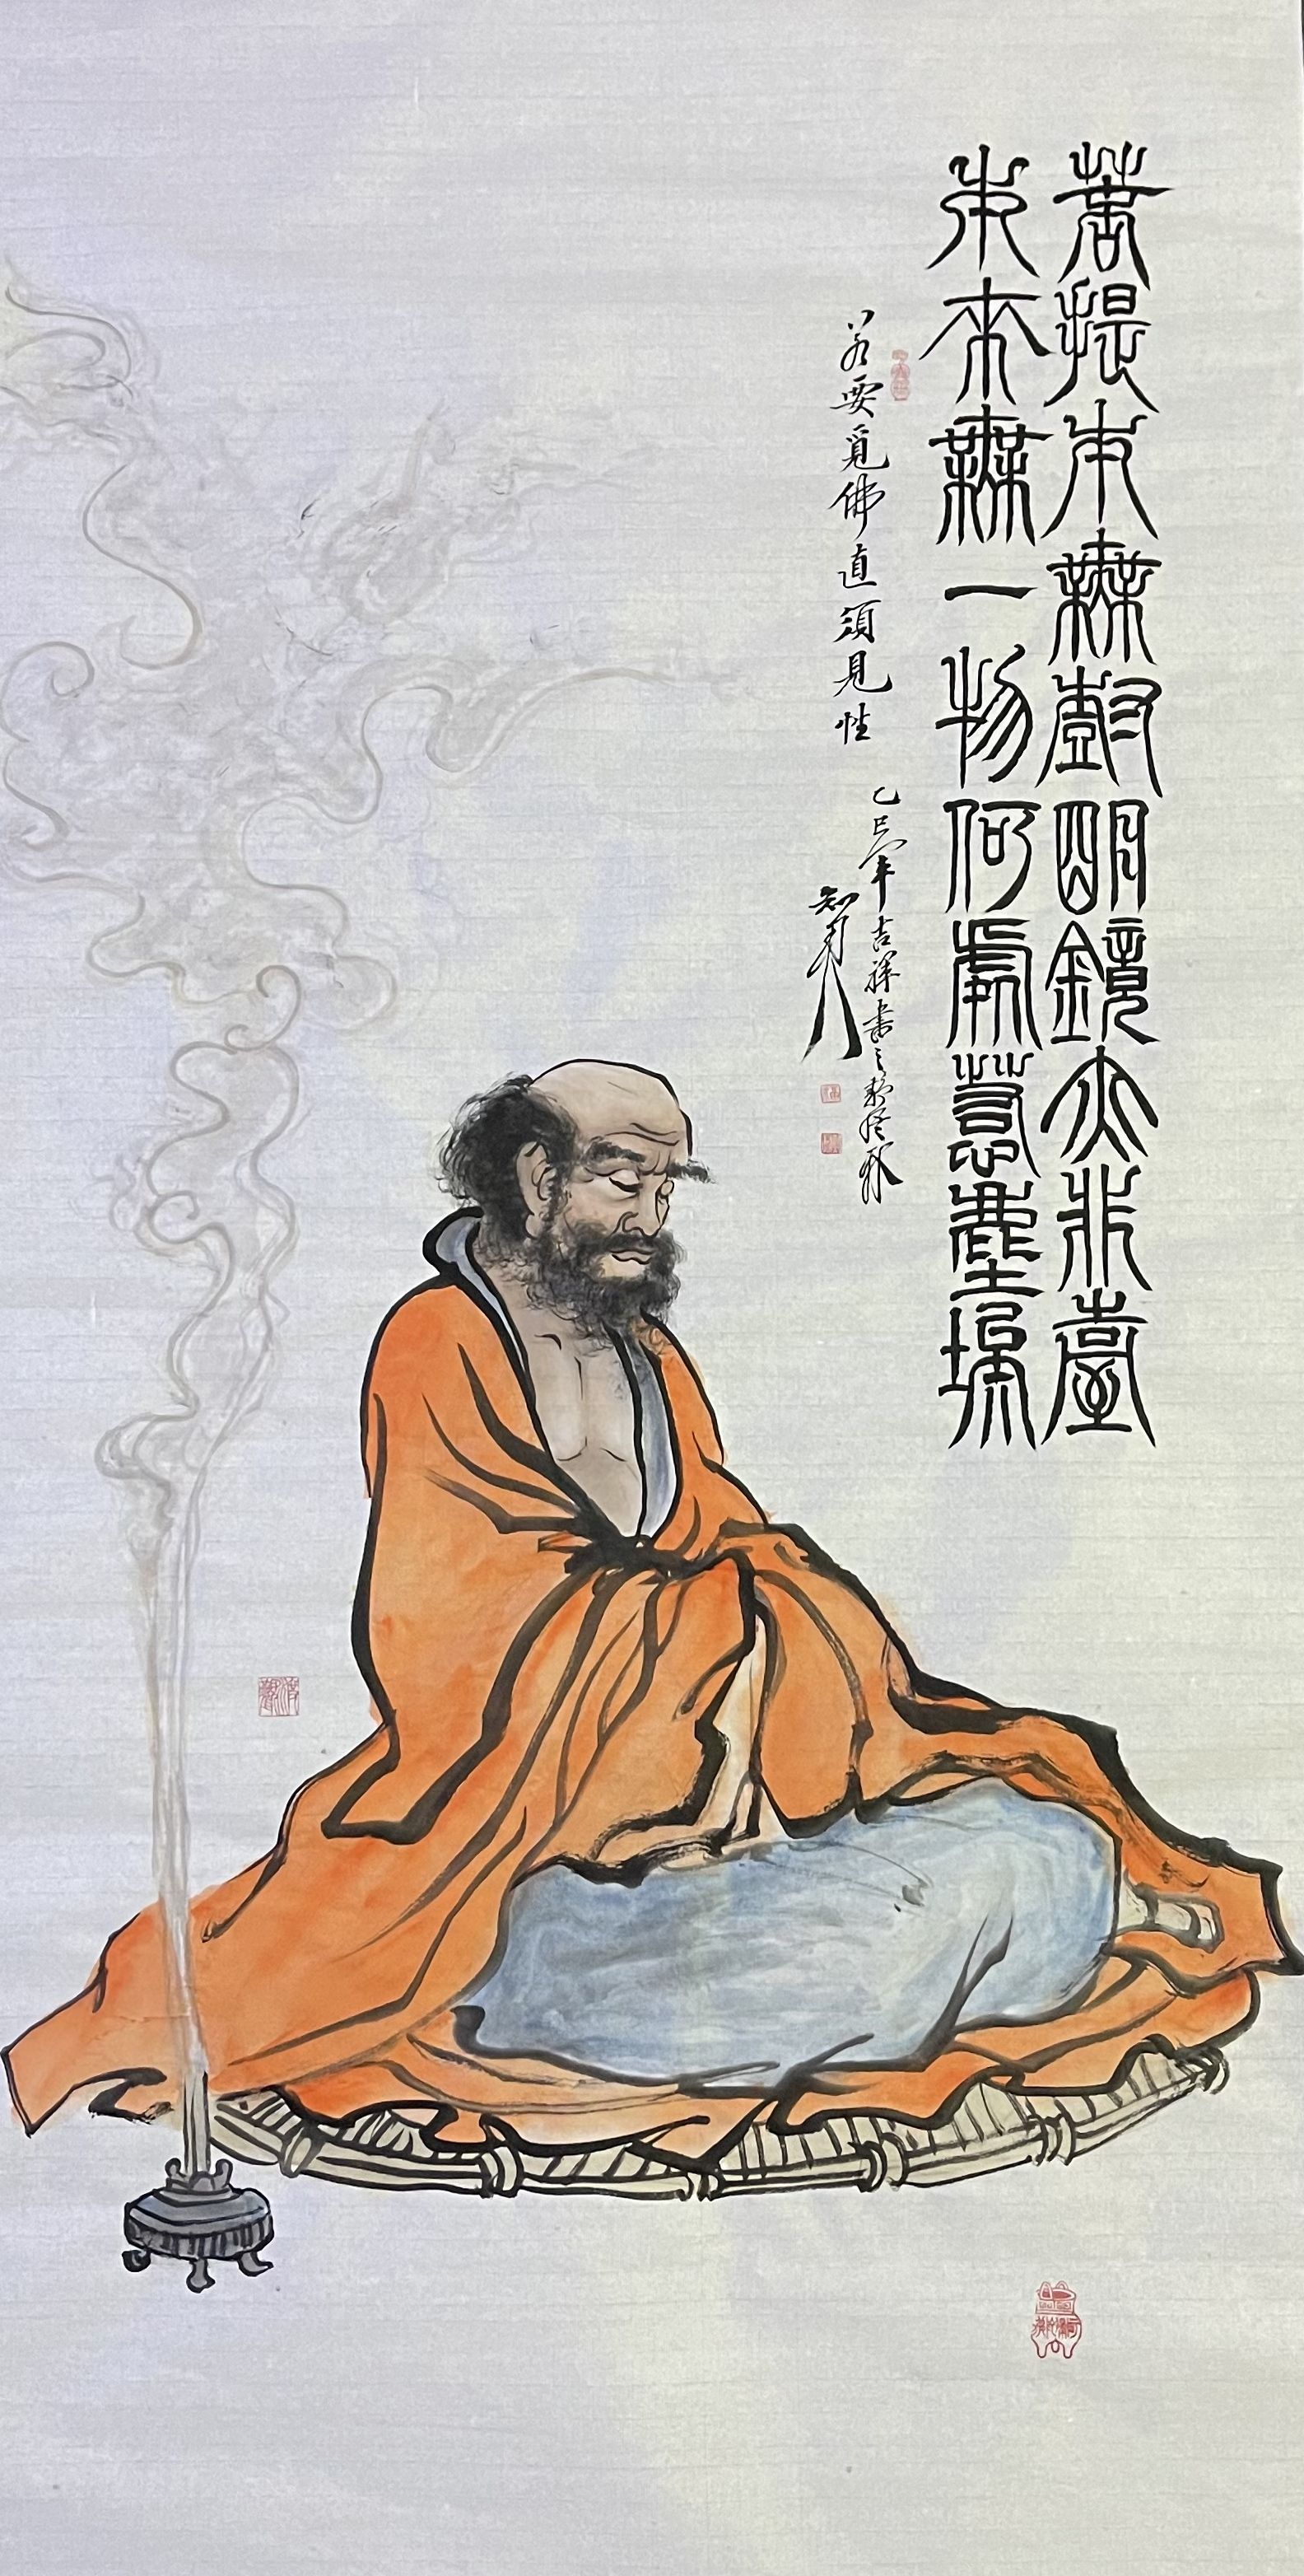 菩提本無樹明鏡亦非臺
本來無一物何處惹塵埃
若要覓佛直須見性
乙巳年吉祥書之於